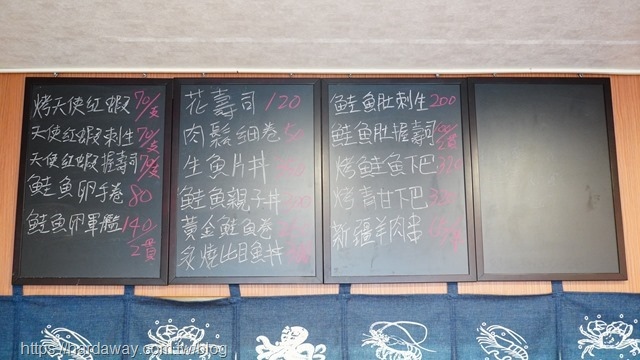 烤天使紅蝦 70/支
天使紅蝦刺生 70/支
天使紅蝦握壽司 70/支
鮭魚卵手卷 80
鮭魚卵軍艦 140/2貫
花壽司 120
肉鬆細卷 50
生魚片丼
鮭魚親子丼
黃金鮭魚卷
炙燒比目魚丼
鮭魚肚刺生 200
鮭魚肚握壽司
烤鮭魚下巴
烤青甘下巴
新疆羊肉串
https://hardaway.com.tw/blog